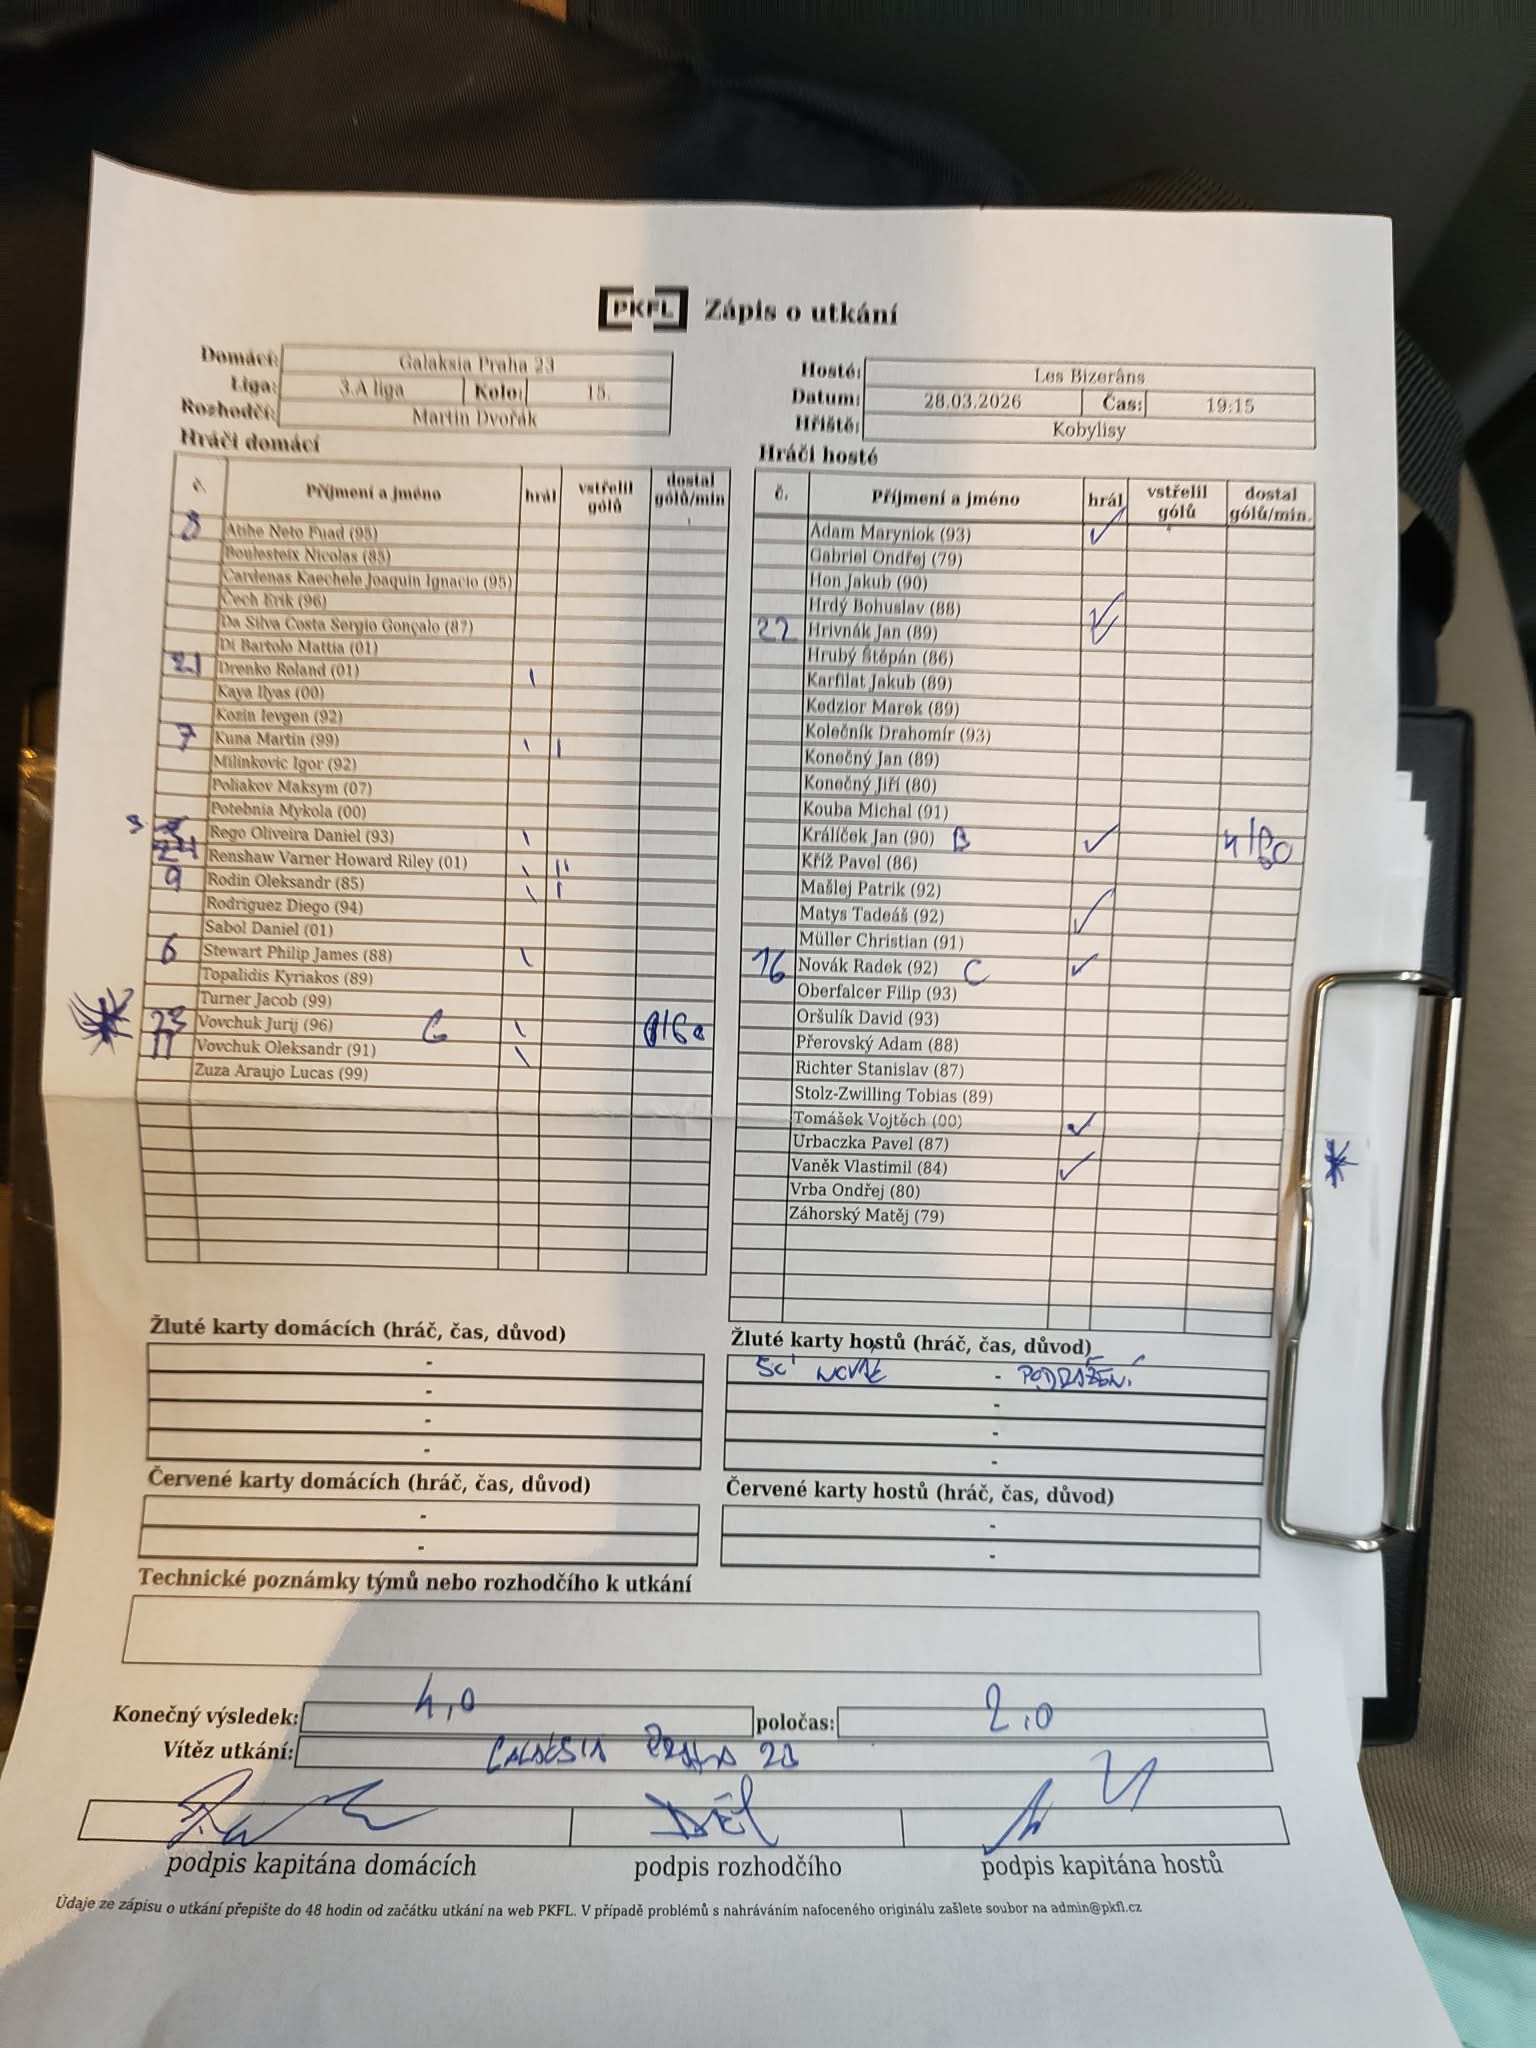 PKFL Zápis o utkání
Domácí: Galaksia Praha 23
Liga: 3.A liga Kolo: 15.
Rozhodčí: Martin Dvořák
Hosté: Les Bizerâns
Datum: 28.03.2026 Čas: 19:15
Hřiště: Kobylisy
Hráči domácí
č. Příjmení a jméno hrál vstřelil gólů dostal gólů/min
8 Atihe Neto Fuad (95)
Boulesteix Nicolas (85)
Cardenas Kaechele Joaquin Ignacio (95)
Čech Erik (96)
Da Silva Costa Sergio Gonçalo (87)
Di Bartolo Mattia (01)
21 Drenko Roland (01) \
Kaya Ilyas (00)
Kozin Ievgen (92)
7 Kuna Martin (99) \ |
Milinkovic Igor (92)
Poliakov Maksym (07)
Potebnia Mykola (00)
3 Rego Oliveira Daniel (93) \
24 Renshaw Varner Howard Riley (01) \ ||
9 Rodin Oleksandr (85) \ |
Rodriguez Diego (94)
Sabol Daniel (01)
6 Stewart Philip James (88) \
Topalidis Kyriakos (89)
Turner Jacob (99)
23 Vovchuk Jurij (96) G \ 0/60
11 Vovchuk Oleksandr (91) \
Zuza Araujo Lucas (99)
Hráči hosté
č. Příjmení a jméno hrál vstřelil gólů dostal gólů/min.
Adam Maryniok (93) ✓
Gabriel Ondřej (79)
Hon Jakub (90)
Hrdý Bohuslav (88) ✓
22 Hrivnák Jan (89) ✓
Hrubý Štěpán (86)
Karfilat Jakub (89)
Kedzior Marek (89)
Kolečník Drahomír (93)
Konečný Jan (89)
Konečný Jiří (80)
Kouba Michal (91)
Králíček Jan (90) B ✓ 4/60
Kříž Pavel (86)
Mašlej Patrik (92)
Matys Tadeáš (92) ✓
Müller Christian (91)
16 Novák Radek (92) C ✓
Oberfalcer Filip (93)
Oršulík David (93)
Přerovský Adam (88)
Richter Stanislav (87)
Stolz-Zwilling Tobias (89)
Tomášek Vojtěch (00) ✓
Urbaczka Pavel (87)
Vaněk Vlastimil (84) ✓
Vrba Ondřej (80)
Záhorský Matěj (79)
Žluté karty domácích (hráč, čas, důvod)
-
-
-
-
Žluté karty hostů (hráč, čas, důvod)
NOVÁK - PODRAŽENÍ
-
-
-
Červené karty domácích (hráč, čas, důvod)
-
-
Červené karty hostů (hráč, čas, důvod)
-
-
Technické poznámky týmů nebo rozhodčího k utkání
Konečný výsledek: 4:0 poločas: 2:0
Vítěz utkání: GALAKSIA PRAHA 23
podpis kapitána domácích podpis rozhodčího podpis kapitána hostů
Údaje ze zápisu o utkání přepište do 48 hodin od začátku utkání na web PKFL. V případě problémů s nahráváním nafoceného originálu zašlete soubor na admin@pkfl.cz